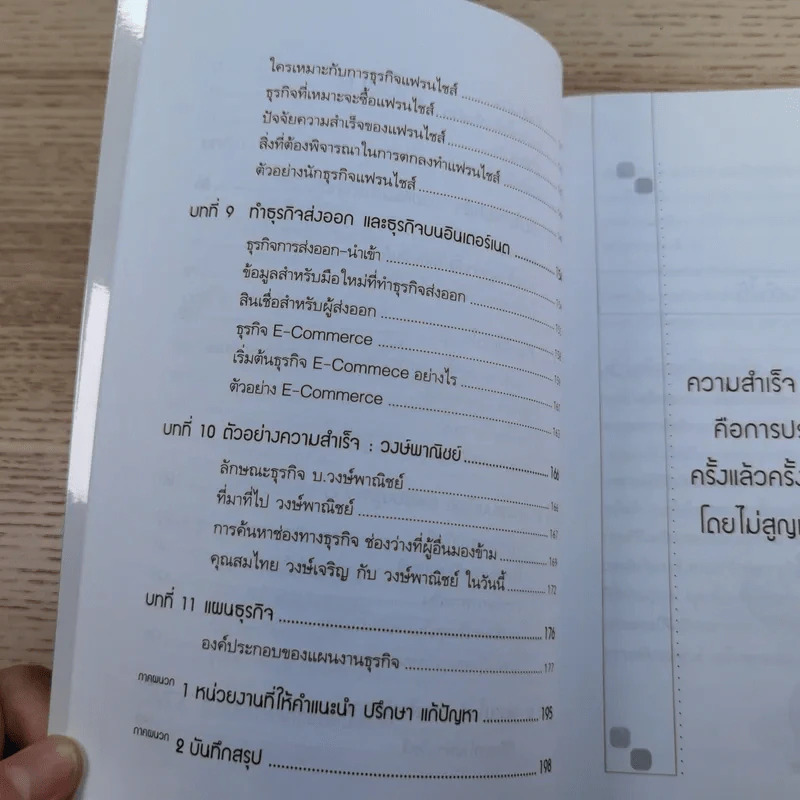 ใครเหมาะกับการธุรกิจแฟรนไชส์
ธุรกิจที่เหมาะจะซื้อแฟรนไชส์
ปัจจัยความสำเร็จของแฟรนไชส์
สิ่งที่ต้องพิจารณาในการตกลงทำแฟรนไชส์
ตัวอย่างนักธุรกิจแฟรนไชส์
บทที่ 9 ทำธุรกิจส่งออก และธุรกิจบนอินเตอร์เนต
ธุรกิจการส่งออก-นำเข้า
ข้อมูลสำหรับมือใหม่ที่ทำธุรกิจส่งออก
สินเชื่อสำหรับผู้ส่งออก
ธุรกิจ E-Commerce
เริ่มต้นธุรกิจ E-Commece อย่างไร
ตัวอย่าง E-Commerce
บทที่ 10 ตัวอย่างความสำเร็จ : วงษ์พาณิชย์ 166
ลักษณะธุรกิจ บ.วงษ์พาณิชย์ 166
ที่มาที่ไป วงษ์พาณิชย์ 167
การค้นหาช่องทางธุรกิจ ช่องว่างที่ผู้อื่นมองข้าม 169
คุณสมไทย วงษ์เจริญ กับ วงษ์พาณิชย์ ในวันนี้ 172
บทที่ 11 แผนธุรกิจ 176
องค์ประกอบของแผนงานธุรกิจ 177
ภาคผนวก 1 หน่วยงานที่ให้คำแนะนำ ปรึกษา แก้ปัญหา 195
ภาคผนวก 2 บันทึกสรุป 198
ความสำเร็จ
คือการปร
ครั้งแล้วครั้ง
โดยไม่สูญ